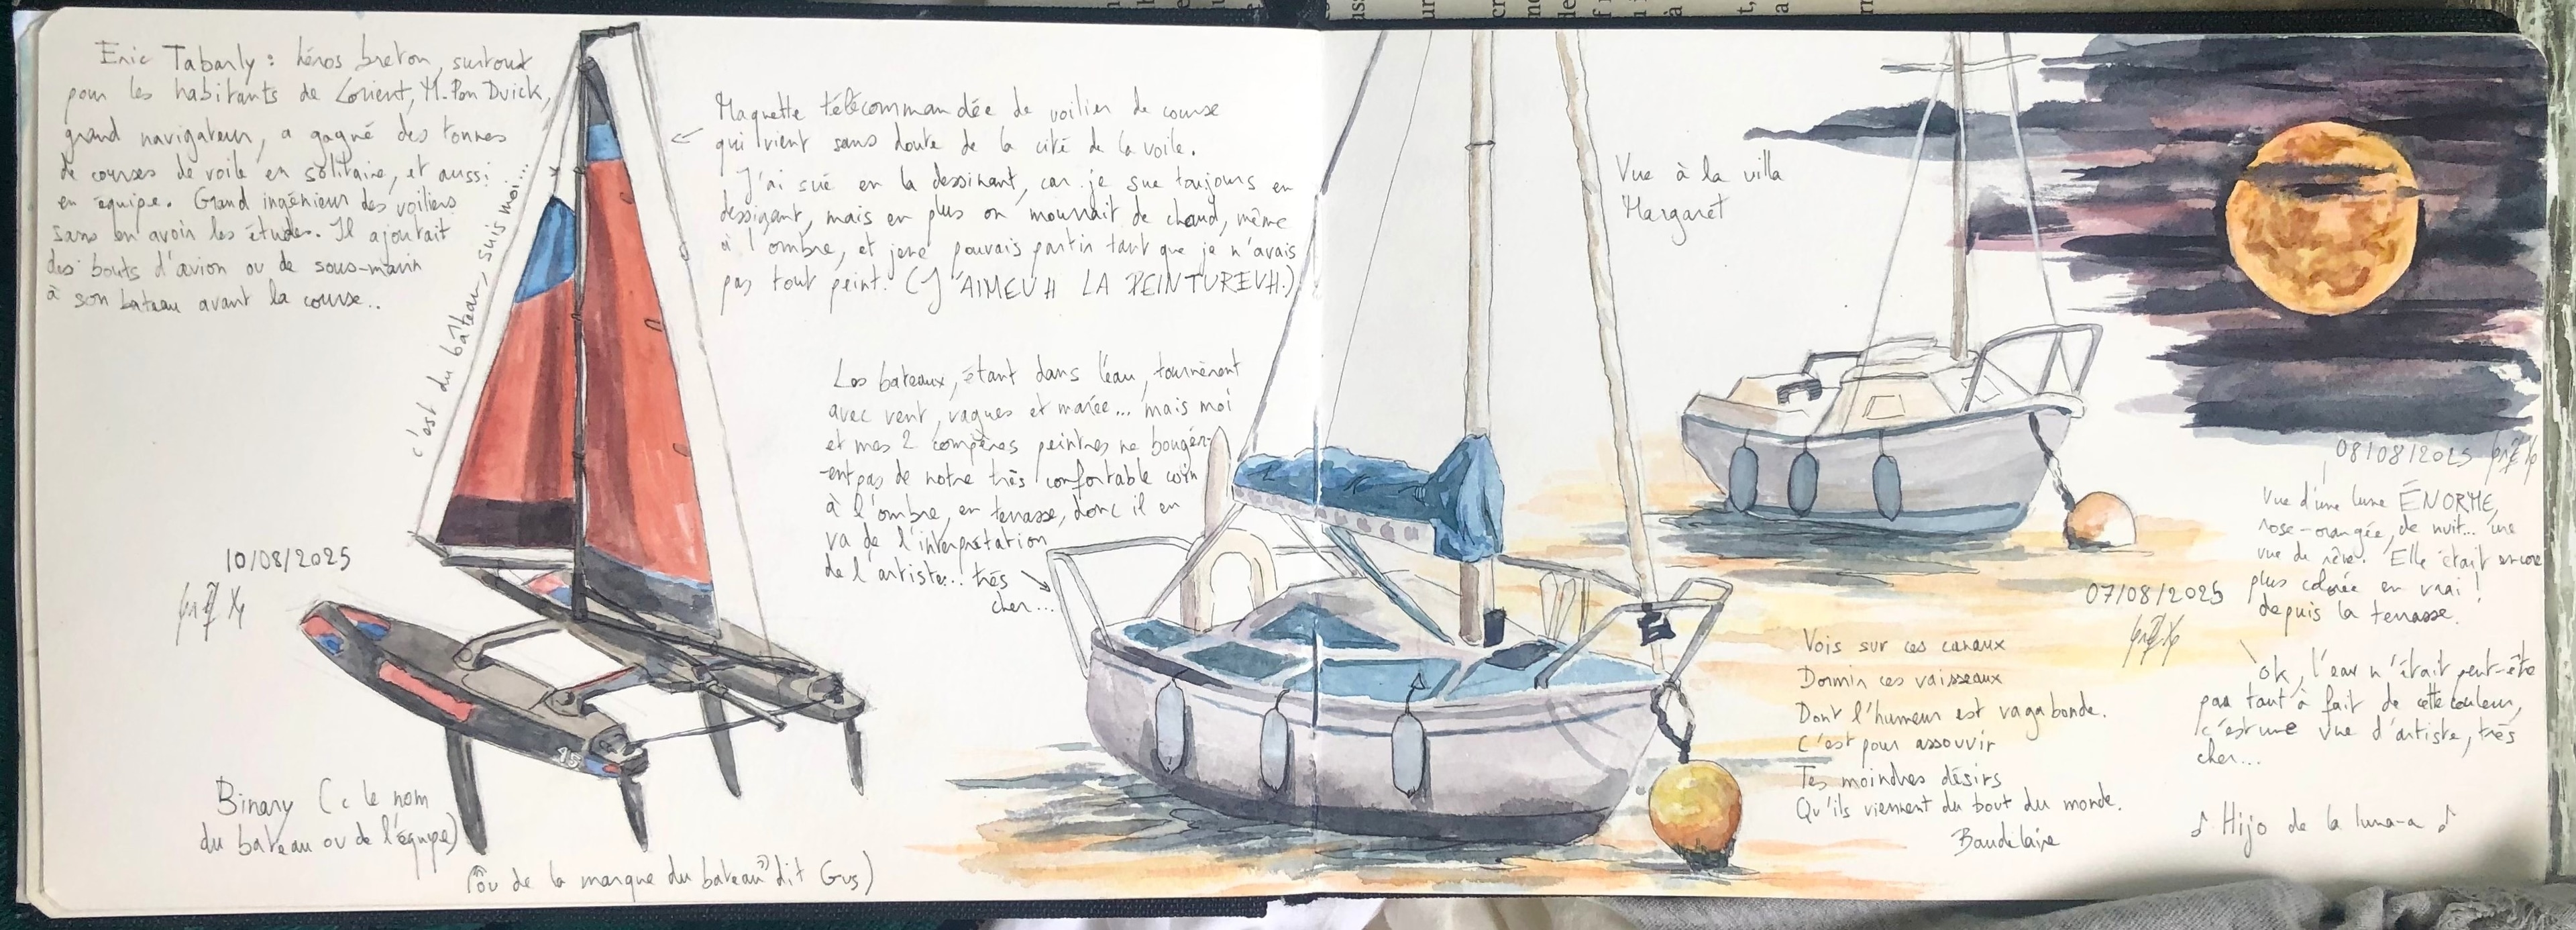 Eric Tabarly : héros breton, surtout
pour les habitants de Lorient, M. Pen Duick,
grand navigateur, a gagné des tonnes
de courses de voile en solitaire, et aussi
en équipe. Grand ingénieur des voiliers
sans en avoir les études. Il ajoutait
des bouts d'avion ou de sous-marin
à son bateau avant la course..
c'est du bâteau, suis moi...
10/08/2025
Binary (c le nom
du bateau ou de l'équipe)
(ou de la marque du bateau" dit Gus)
15
Maquette télécommandée de voilier de course
qui vient sans doute de la cité de la voile.
J'ai sué en la dessinant, car je sue toujours en
dessinant, mais en plus on mourrait de chaud, même
à l'ombre, et je ne pouvais partir tant que je n'avais
pas tout peint. (J'AIMEUH LA PEINTUREUH.)
Les bateaux, étant dans l'eau, tournèrent
avec vent, vagues et marée... mais moi
et mes 2 compères peintres ne bougèr-
-ent pas de notre très confortable coin
à l'ombre, en terrasse, donc il en
va de l'interprétation
de l'artiste... très
cher...
Vue à la villa
Margaret
08/08/2025
Vue d'une lune ÉNORME,
rose-orangée, de nuit... une
vue de rêve. Elle était encore
plus colorée en vrai !
depuis la terrasse.
07/08/2025
Vois sur ces canaux
Dormir ces vaisseaux
Dont l'humeur est vagabonde.
C'est pour assouvir
Tes moindres désirs
Qu'ils viennent du bout du monde.
Baudelaire
ok, l'eau n'était peut-être
pas tout à fait de cette couleur,
c'est une vue d'artiste, très
cher...
♪ Hijo de la luna-a ♪